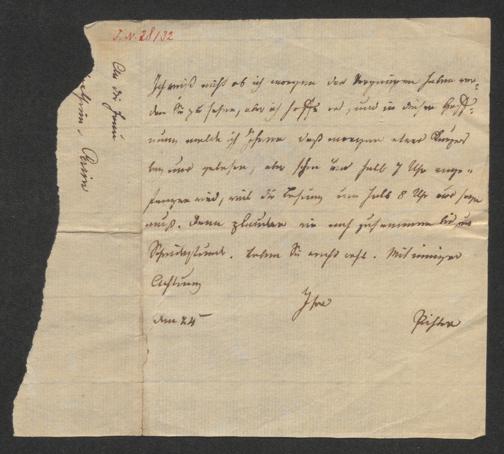 I. N. 28132
An die Frau
Ich weiß nicht ob ich morgen das Vergnügen haben wer-
den Sie zu sehen, aber ich hoffe es, und in dieser Hoff-
nung melde ich Ihnen daß morgen etwas
bey uns gelesen, aber schon um halb 7 Uhr ange-
fangen wird, weil die Lesung um halb 8 Uhr aus seyn
muß. Dann plaudern wir noch zusammen bis zur
Scheidestunde. Leben Sie recht wohl. Mit inniger
Achtung
Ihre
den 24
Pichler